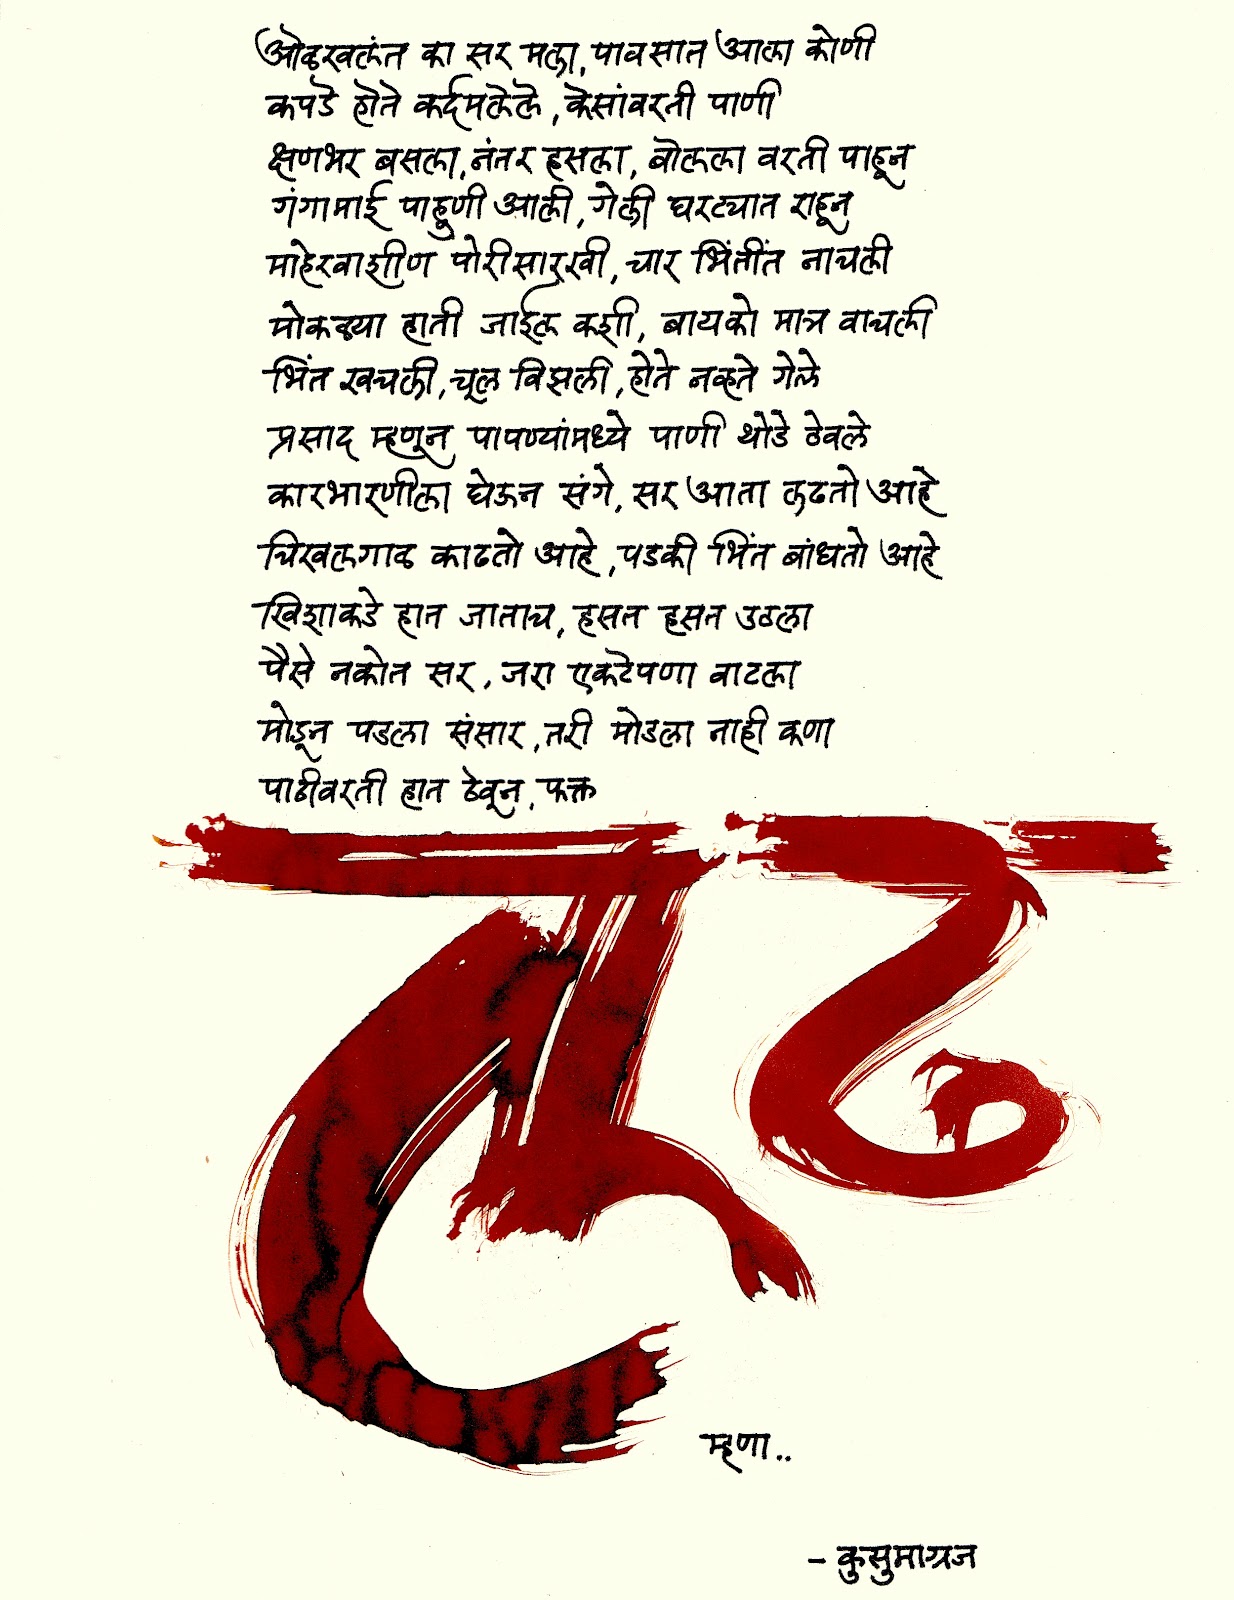 ओळखलंत का सर मला, पावसात आला कोणी
कपडे होते कर्दमलेले, केसांवरती पाणी
क्षणभर बसला, नंतर हसला, बोलला वरती पाहून
गंगामाई पाहुणी आली, गेली घरट्यात राहून
माहेरवाशीण पोरीसारखी, चार भिंतींत नाचली
मोकळ्या हाती जाईल कशी, बायको मात्र वाचली
भिंत खचली, चूल विझली, होते नव्हते गेले
प्रसाद म्हणून पापण्यांमध्ये पाणी थोडे ठेवले
कारभारणीला घेऊन संगे, सर आता लढतो आहे
चिखलगाळ काढतो आहे, पडकी भिंत बांधतो आहे
खिशाकडे हात जाताच, हसत हसत उठला
पैसे नकोत सर, जरा एकटेपणा वाटला
मोडून पडला संसार, तरी मोडला नाही कणा
पाठीवरती हात ठेवून, फक्त
लढ
म्हणा..
- कुसुमाग्रज